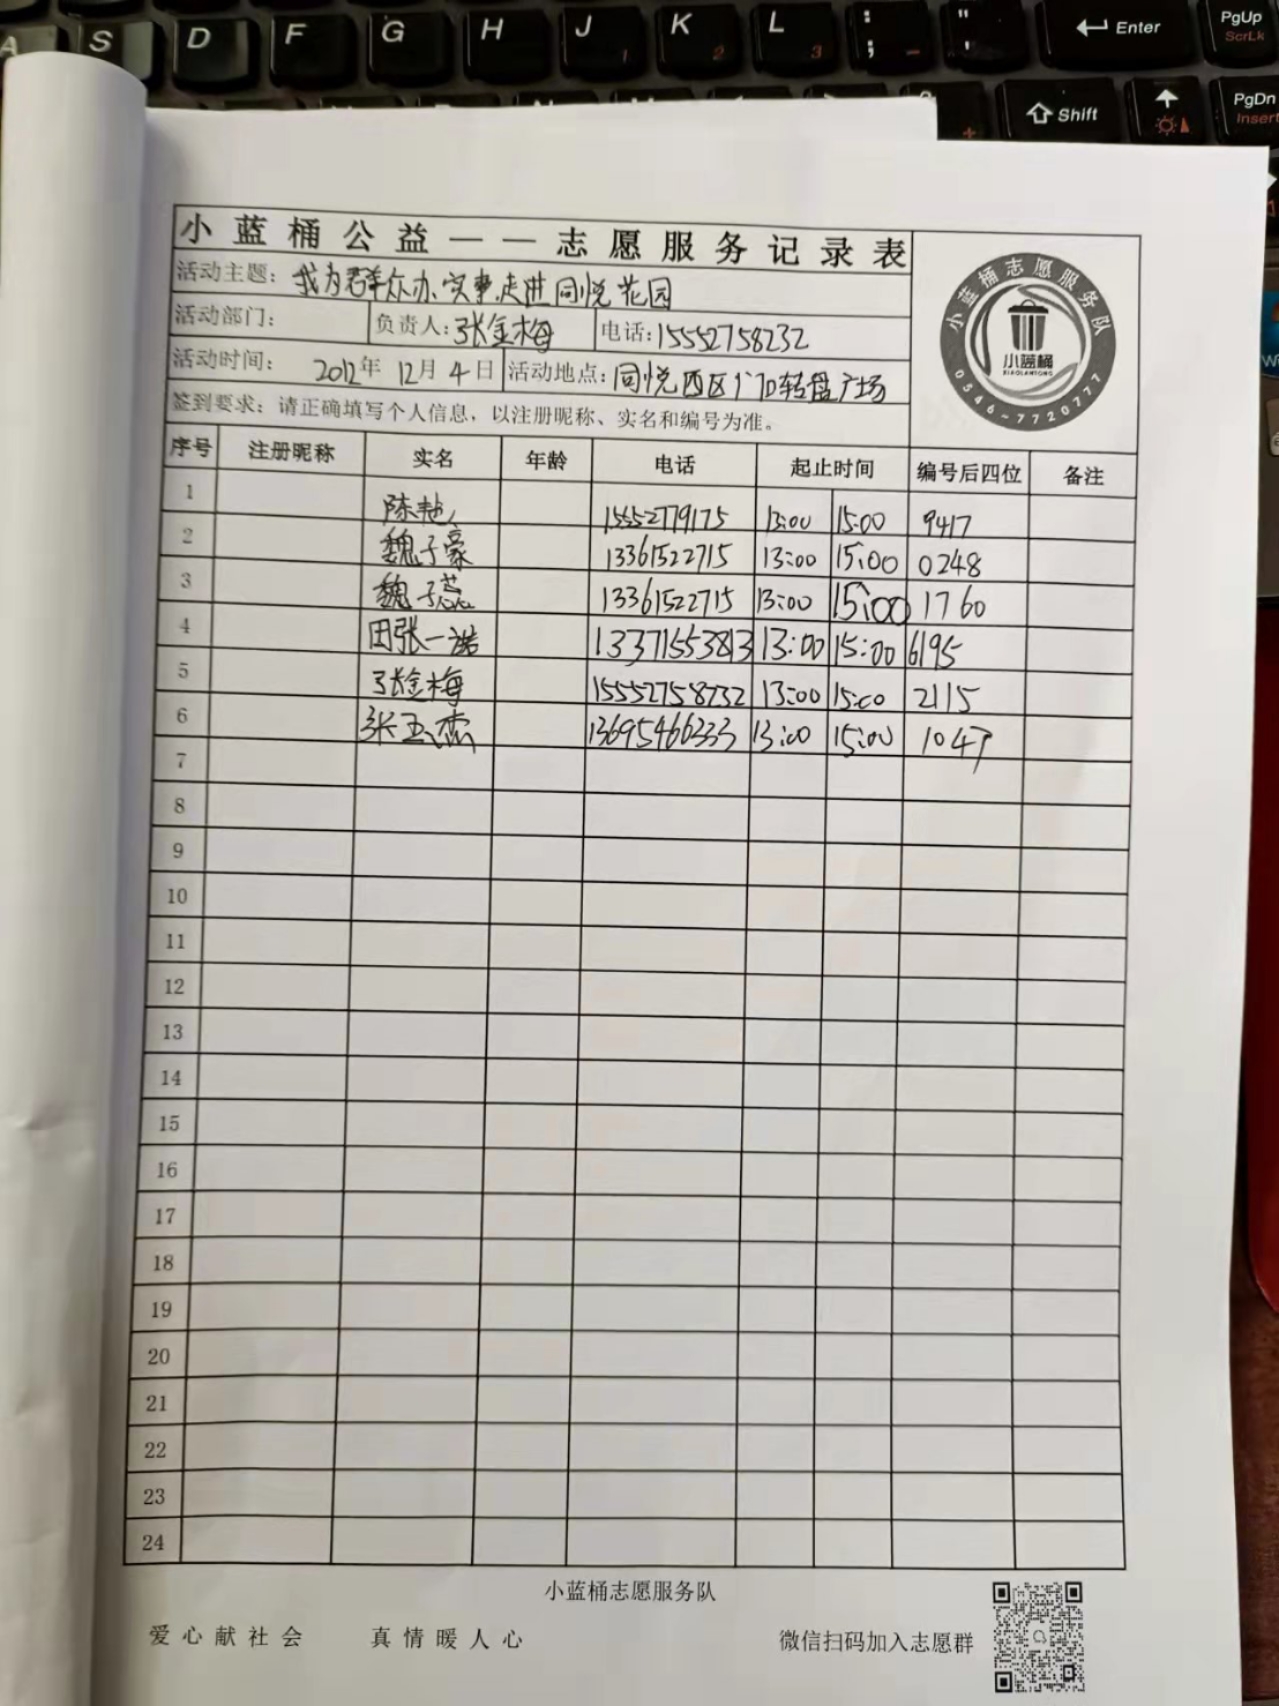 A S D F G H J 1 K 2 L 3 : ; " ' Enter PgUp ScrLk
Shift PgDn Insert
小蓝桶公益——志愿服务记录表
活动主题：我为群众办实事，走进同悦花园
活动部门： 负责人：张金梅 电话：15552758232
活动时间： 2012年 12月 4日 活动地点：同悦西区门口转盘广场
签到要求：请正确填写个人信息，以注册昵称、实名和编号为准。
小蓝桶志愿服务队
小蓝桶
XIAOLANTONG
0546-7720777
序号 注册昵称 实名 年龄 电话 起止时间 编号后四位 备注
1 陈艳 15552779175 13:00 15:00 9417
2 魏子豪 13361522715 13:00 15:00 0248
3 魏子蕊 13361522715 13:00 15:00 1760
4 田张一诺 13371553813 13:00 15:00 6195
5 张金梅 15552758232 13:00 15:00 2115
6 张玉杰 13695466333 13:00 15:00 1047
7
8
9
10
11
12
13
14
15
16
17
18
19
20
21
22
23
24
小蓝桶志愿服务队
爱心献社会 真情暖人心 微信扫码加入志愿群